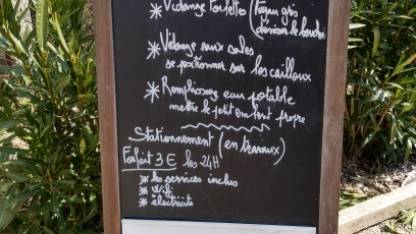 * Vidange toilette (tuyau gris
dévisser le bouchon
* Vidange eaux sales
se positionner sur les cailloux
* Remplissage eau potable
mettre le petit embout propre
Stationnement (en travaux)
Forfait 3€ les 24H
* les services inclus
* wifi
* électricité